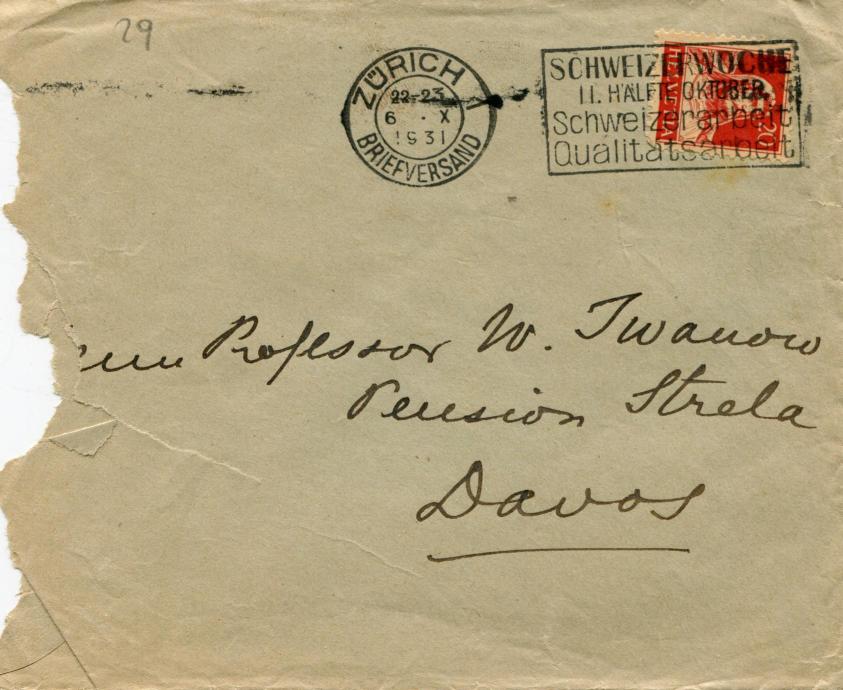 29
ZÜRICH
22-23
6 · X
1931
BRIEFVERSAND
SCHWEIZERWOCHE
II. HÄLFTE OKTOBER.
Schweizerarbeit
Qualitätsarbeit
20
Professor W. Iwanow
Pension Strela
Davos